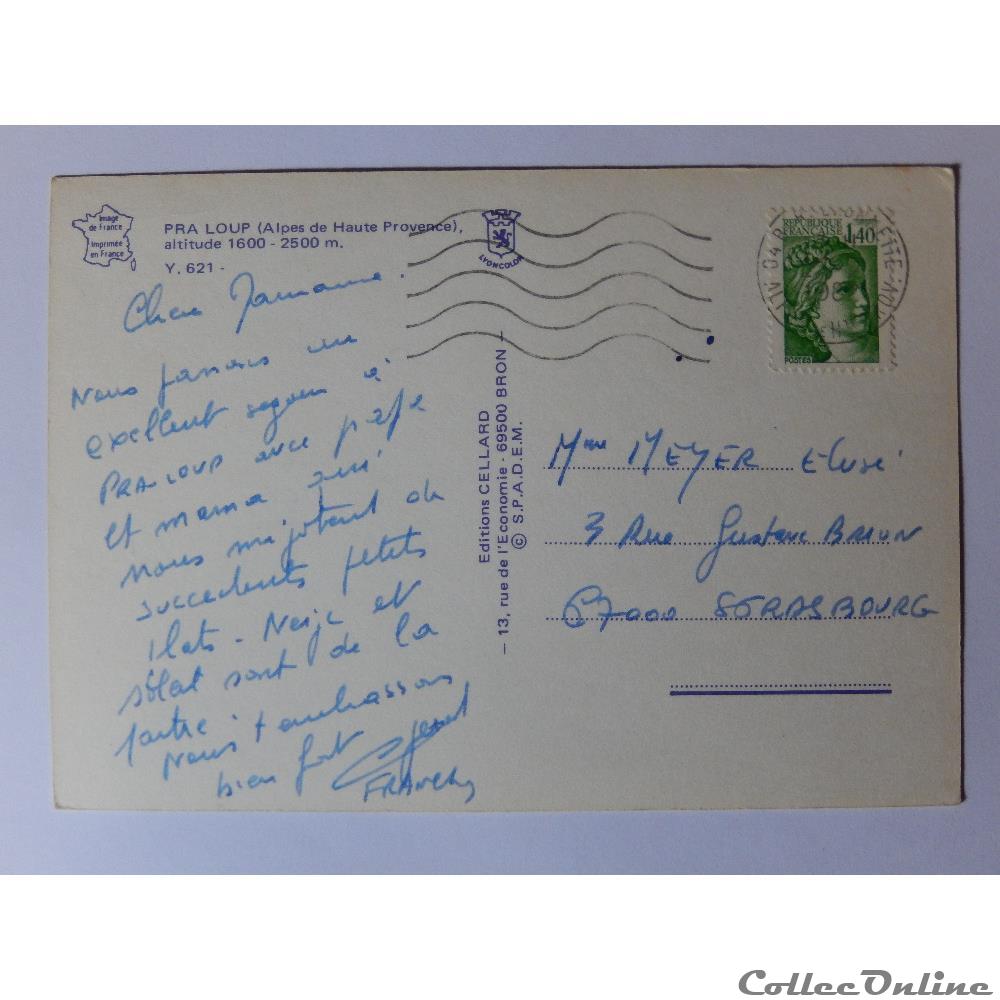 Image
de France
Imprimée
en France
PRA LOUP (Alpes de Haute Provence),
altitude 1600 - 2500 m.
Y. 621 -
LYONCOLOR
RÉPUBLIQUE
FRANÇAISE
1,40
POSTES
Nous passons un
excellent séjour à
PRA-LOUP avec papa
et maman qui
nous mijotent de
succulents petits
plats - Neige et
soleil sont de la
partie. 
Nous t'embrassons
bien fort
Editions CELLARD
13, rue de l'Economie - 69500 BRON
© S.P.A.D.E.M.
Mme MEYER
3 Rue Gustave BRION
67000 STRASBOURG
CollecOnline